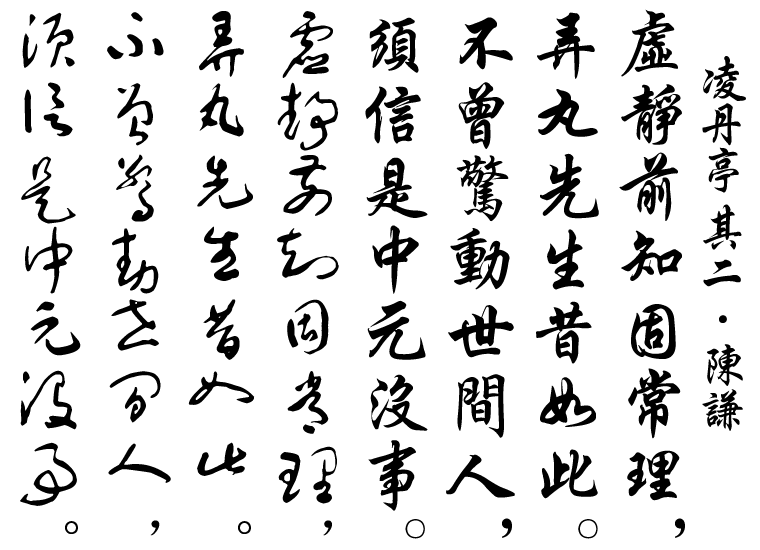 凌丹亭其二·陳謙
虛靜前知固常理，
弄丸先生昔如此。
不曾驚動世間人，
須信是中元沒事。
虛靜前知固常理，
弄丸先生昔如此。
不曾驚動世間人，
須信是中元沒事。